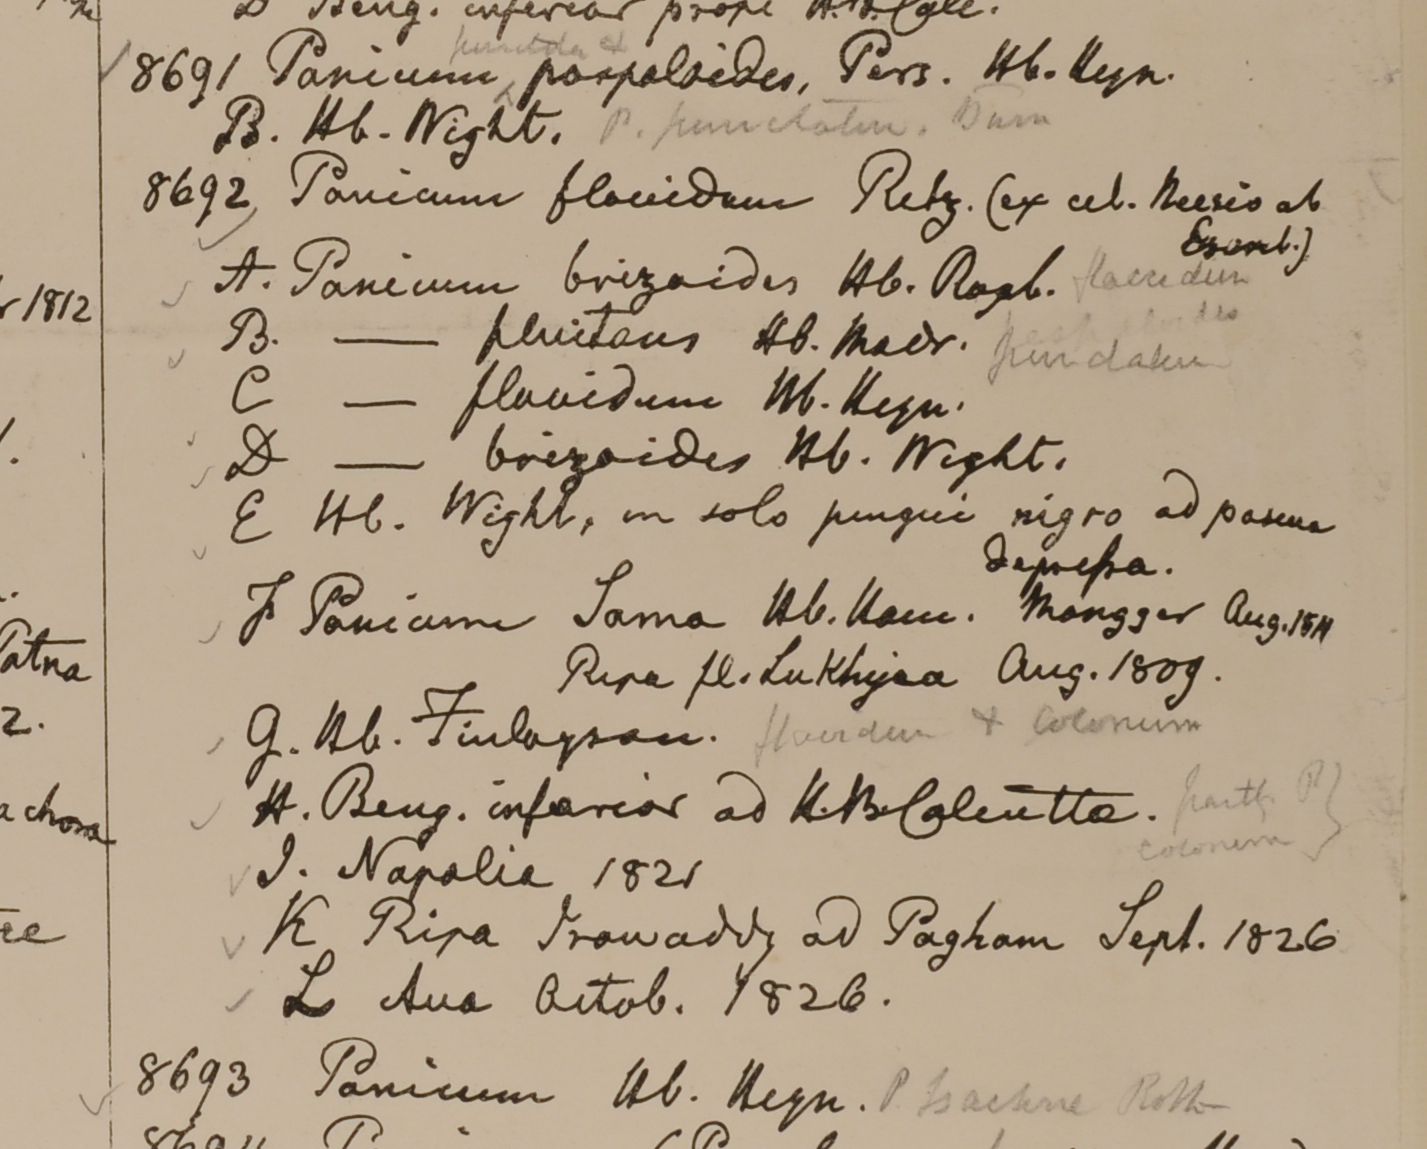 D Beng. inferior prope H.B. Calc.
punctata &
8691 Panicum paspaloides, Pers. Hb. Heyn.
B. Hb. Wight. P. punctatum. Burm
8692, Panicum flavidum Retz. (ex cel. Neesio ab
Esenb.)
A. Panicum brizoides Hb. Roxb. flavidum
r 1812
B. — fluitans Hb. Madr. punctatum
C — flavidum Hb. Heyn.
D — brizoides Hb. Wight.
E Hb. Wight, in solo pingui nigro ad pascua
depressa.
F Panicum Sama Hb. Ham. Mongger Aug. 1811
Patna
Ripa fl. Lukhyaa Aug. 1809.
2.
G. Hb. Finlayson. flavidum & Colonum
H. Beng. inferior ad H.B. Calcutta. partly P.
a chora
colonum
I. Napalia 1821
K Ripa Irawaddy ad Pagham Sept. 1826
L Ava Octob. 1826.
8693 Panicum Hb. Heyn. P. Isachne Roth